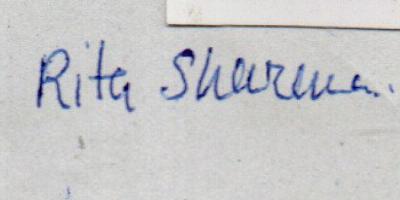 Rita Sharma.